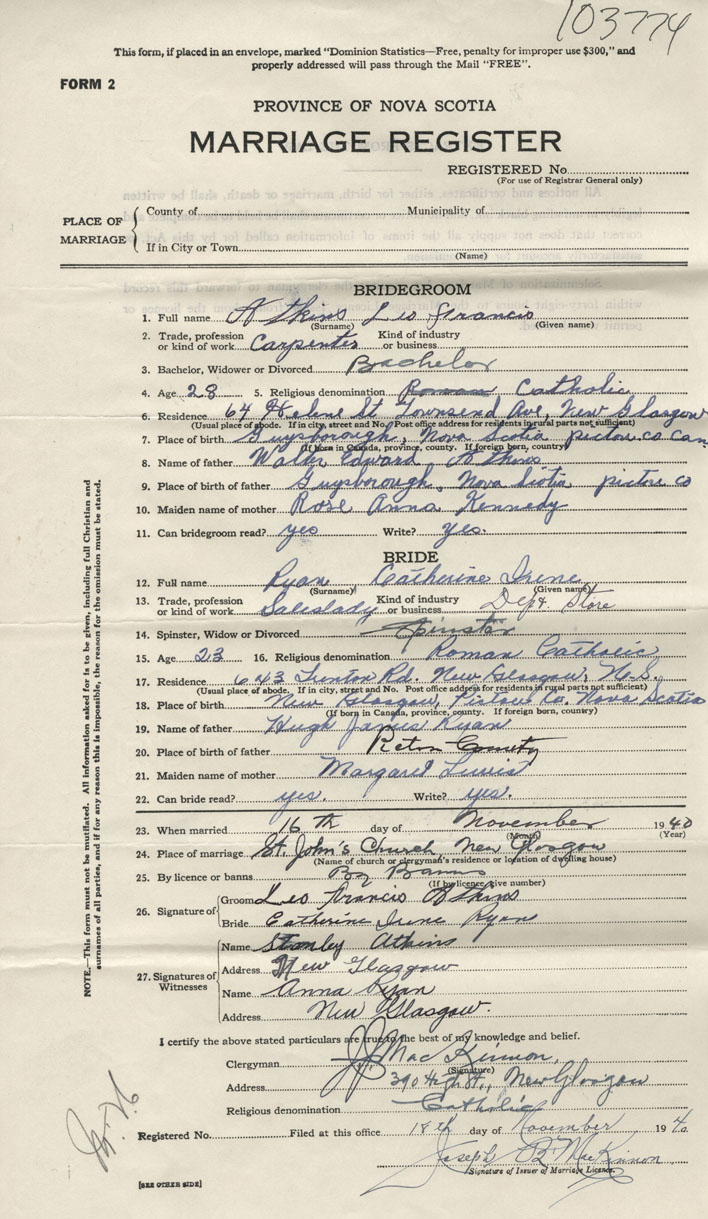 103774
This form, if placed in an envelope, marked "Dominion Statistics—Free, penalty for improper use $300," and
properly addressed will pass through the Mail "FREE".
FORM 2
PROVINCE OF NOVA SCOTIA
MARRIAGE REGISTER
REGISTERED No.
(For use of Registrar General only)
PLACE OF MARRIAGE
County of Municipality of
If in City or Town
(Name)
BRIDEGROOM
1. Full name Atkins Leo Francis
(Surname) (Given name)
2. Trade, profession or kind of work Carpenter Kind of industry or business
3. Bachelor, Widower or Divorced Bachelor
4. Age 28 5. Religious denomination Roman Catholic
6. Residence 64 Helene St Townsend Ave, New Glasgow
(Usual place of abode. If in city, street and No. Post office address for residents in rural parts not sufficient)
7. Place of birth Guysborough, Nova Scotia pictou co Can.
(If born in Canada, province, county. If foreign born, country)
8. Name of father Walter Edward Atkins
9. Place of birth of father Guysborough, Nova Scotia pictou co
10. Maiden name of mother Rose Anna Kennedy
11. Can bridegroom read? yes Write? yes.
BRIDE
12. Full name Ryan Catherine Irene
(Surname) (Given name)
13. Trade, profession or kind of work Saleslady Kind of industry or business Dept. Store
14. Spinster, Widow or Divorced Spinster
15. Age 23 16. Religious denomination Roman Catholic
17. Residence 643 Rd. New Glasgow, N.S.
(Usual place of abode. If in city, street and No. Post office address for residents in rural parts not sufficient)
18. Place of birth New Glasgow, Pictou Co. Nova Scotia
(If born in Canada, province, county. If foreign born, country)
19. Name of father Hugh James Ryan
20. Place of birth of father County
21. Maiden name of mother Margaret
22. Can bride read? yes. Write? yes.
23. When married 16th day of November 1940
(Month) (Year)
24. Place of marriage St. John's Church, New Glasgow
(Name of church or clergyman's residence or location of dwelling house)
25. By licence or banns By Banns
(If by licence, give number)
26. Signature of
Groom Leo Francis Atkins
Bride Catherine Irene Ryan
27. Signatures of Witnesses
Name Stanley Atkins
Address New Glasgow
Name Anna Ryan
Address New Glasgow.
I certify the above stated particulars are true to the best of my knowledge and belief.
Clergyman MacKinnon,
(Signature)
Address 390 High St., New Glasgow
Religious denomination Catholic
Registered No. Filed at this office 18th day of November 1940
Joseph B. MacKinnon
Signature of Issuer of Marriage Licence.
[SEE OTHER SIDE]
NOTE.—This form must not be mutilated. All information asked for is to be given, including full Christian and
surnames of all parties, and if for any reason this is impossible, the reason for the omission must be stated.